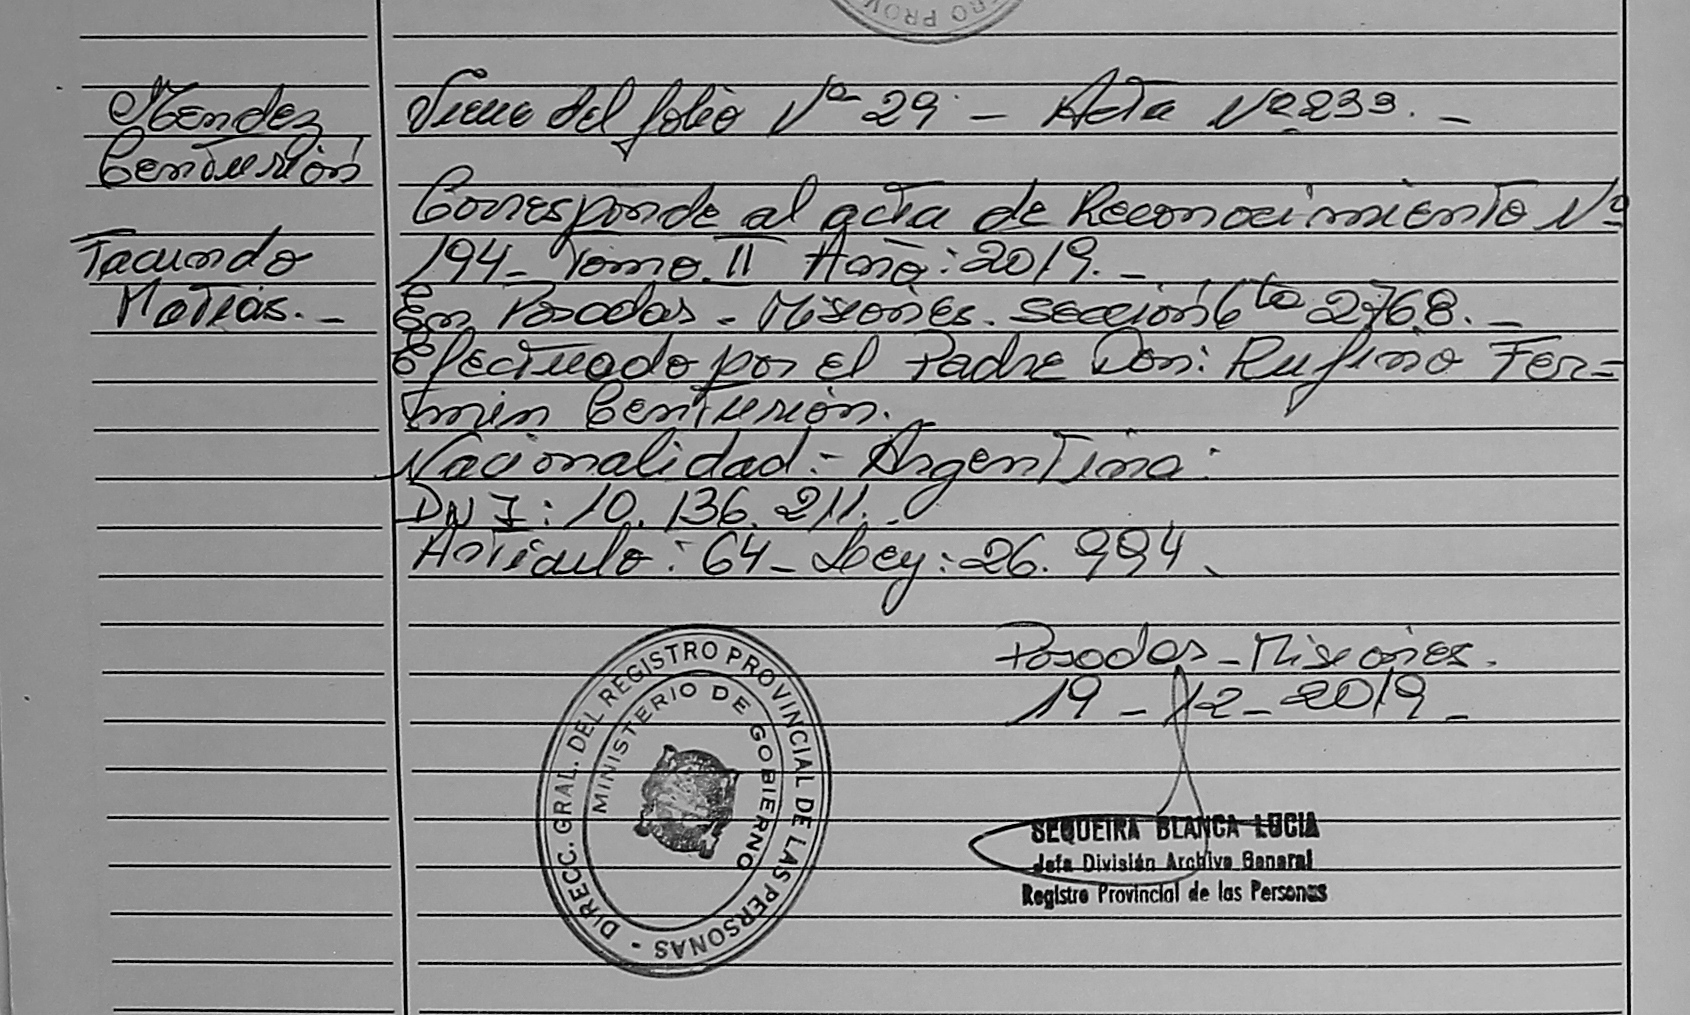 RO PROV
Mendez
Centurión
Facundo
Matías.-
Viene del folio Nº 29 - Acta Nº 233.-
Corresponde al acta de Reconocimiento Nº
194- Tomo II Año: 2019.-
En Posadas - Misiones. Sección 6ta 2768.-
Efectuado por el Padre Don: Rufino Fer=
min Centurión.-
Nacionalidad:- Argentina.
DNI: 10.136.211.-
Artículo: 64- Ley: 26.994.
Posadas - Misiones.
19 - 12 - 2019 -
DIRECC. GRAL. DEL REGISTRO PROVINCIAL DE LAS PERSONAS -
MINISTERIO DE GOBIERNO
SEQUEIRA BLANCA LUCIA
Jefa División Archivo General
Registro Provincial de las Personas